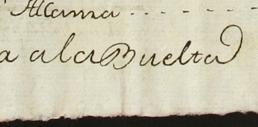 Altama - - - - - -
a a la Buelta